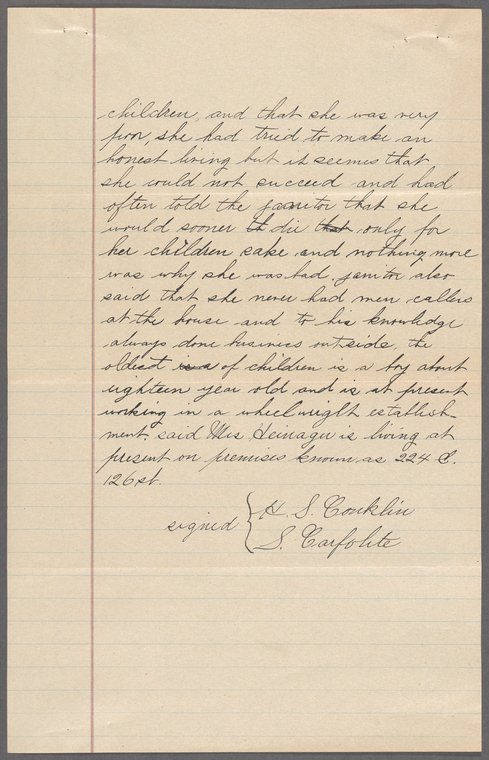 children, and that she was very
poor, she had tried to make an
honest living but it seemes that
she could not succeed and had
often told the janitor that she
would sooner die that only for
her children sake and nothing more
was why she was bad. janitor also
said that she never had men callers
at the house and to his knowledge
always done business outside, the
oldest is a of children is a boy about
eighteen year old and is at present
working in a wheelwright establish-
ment. said Mrs Heinager is living at
present on premises known as 224 E.
126 st.
signed { H. S. Conklin
S. Carfolite